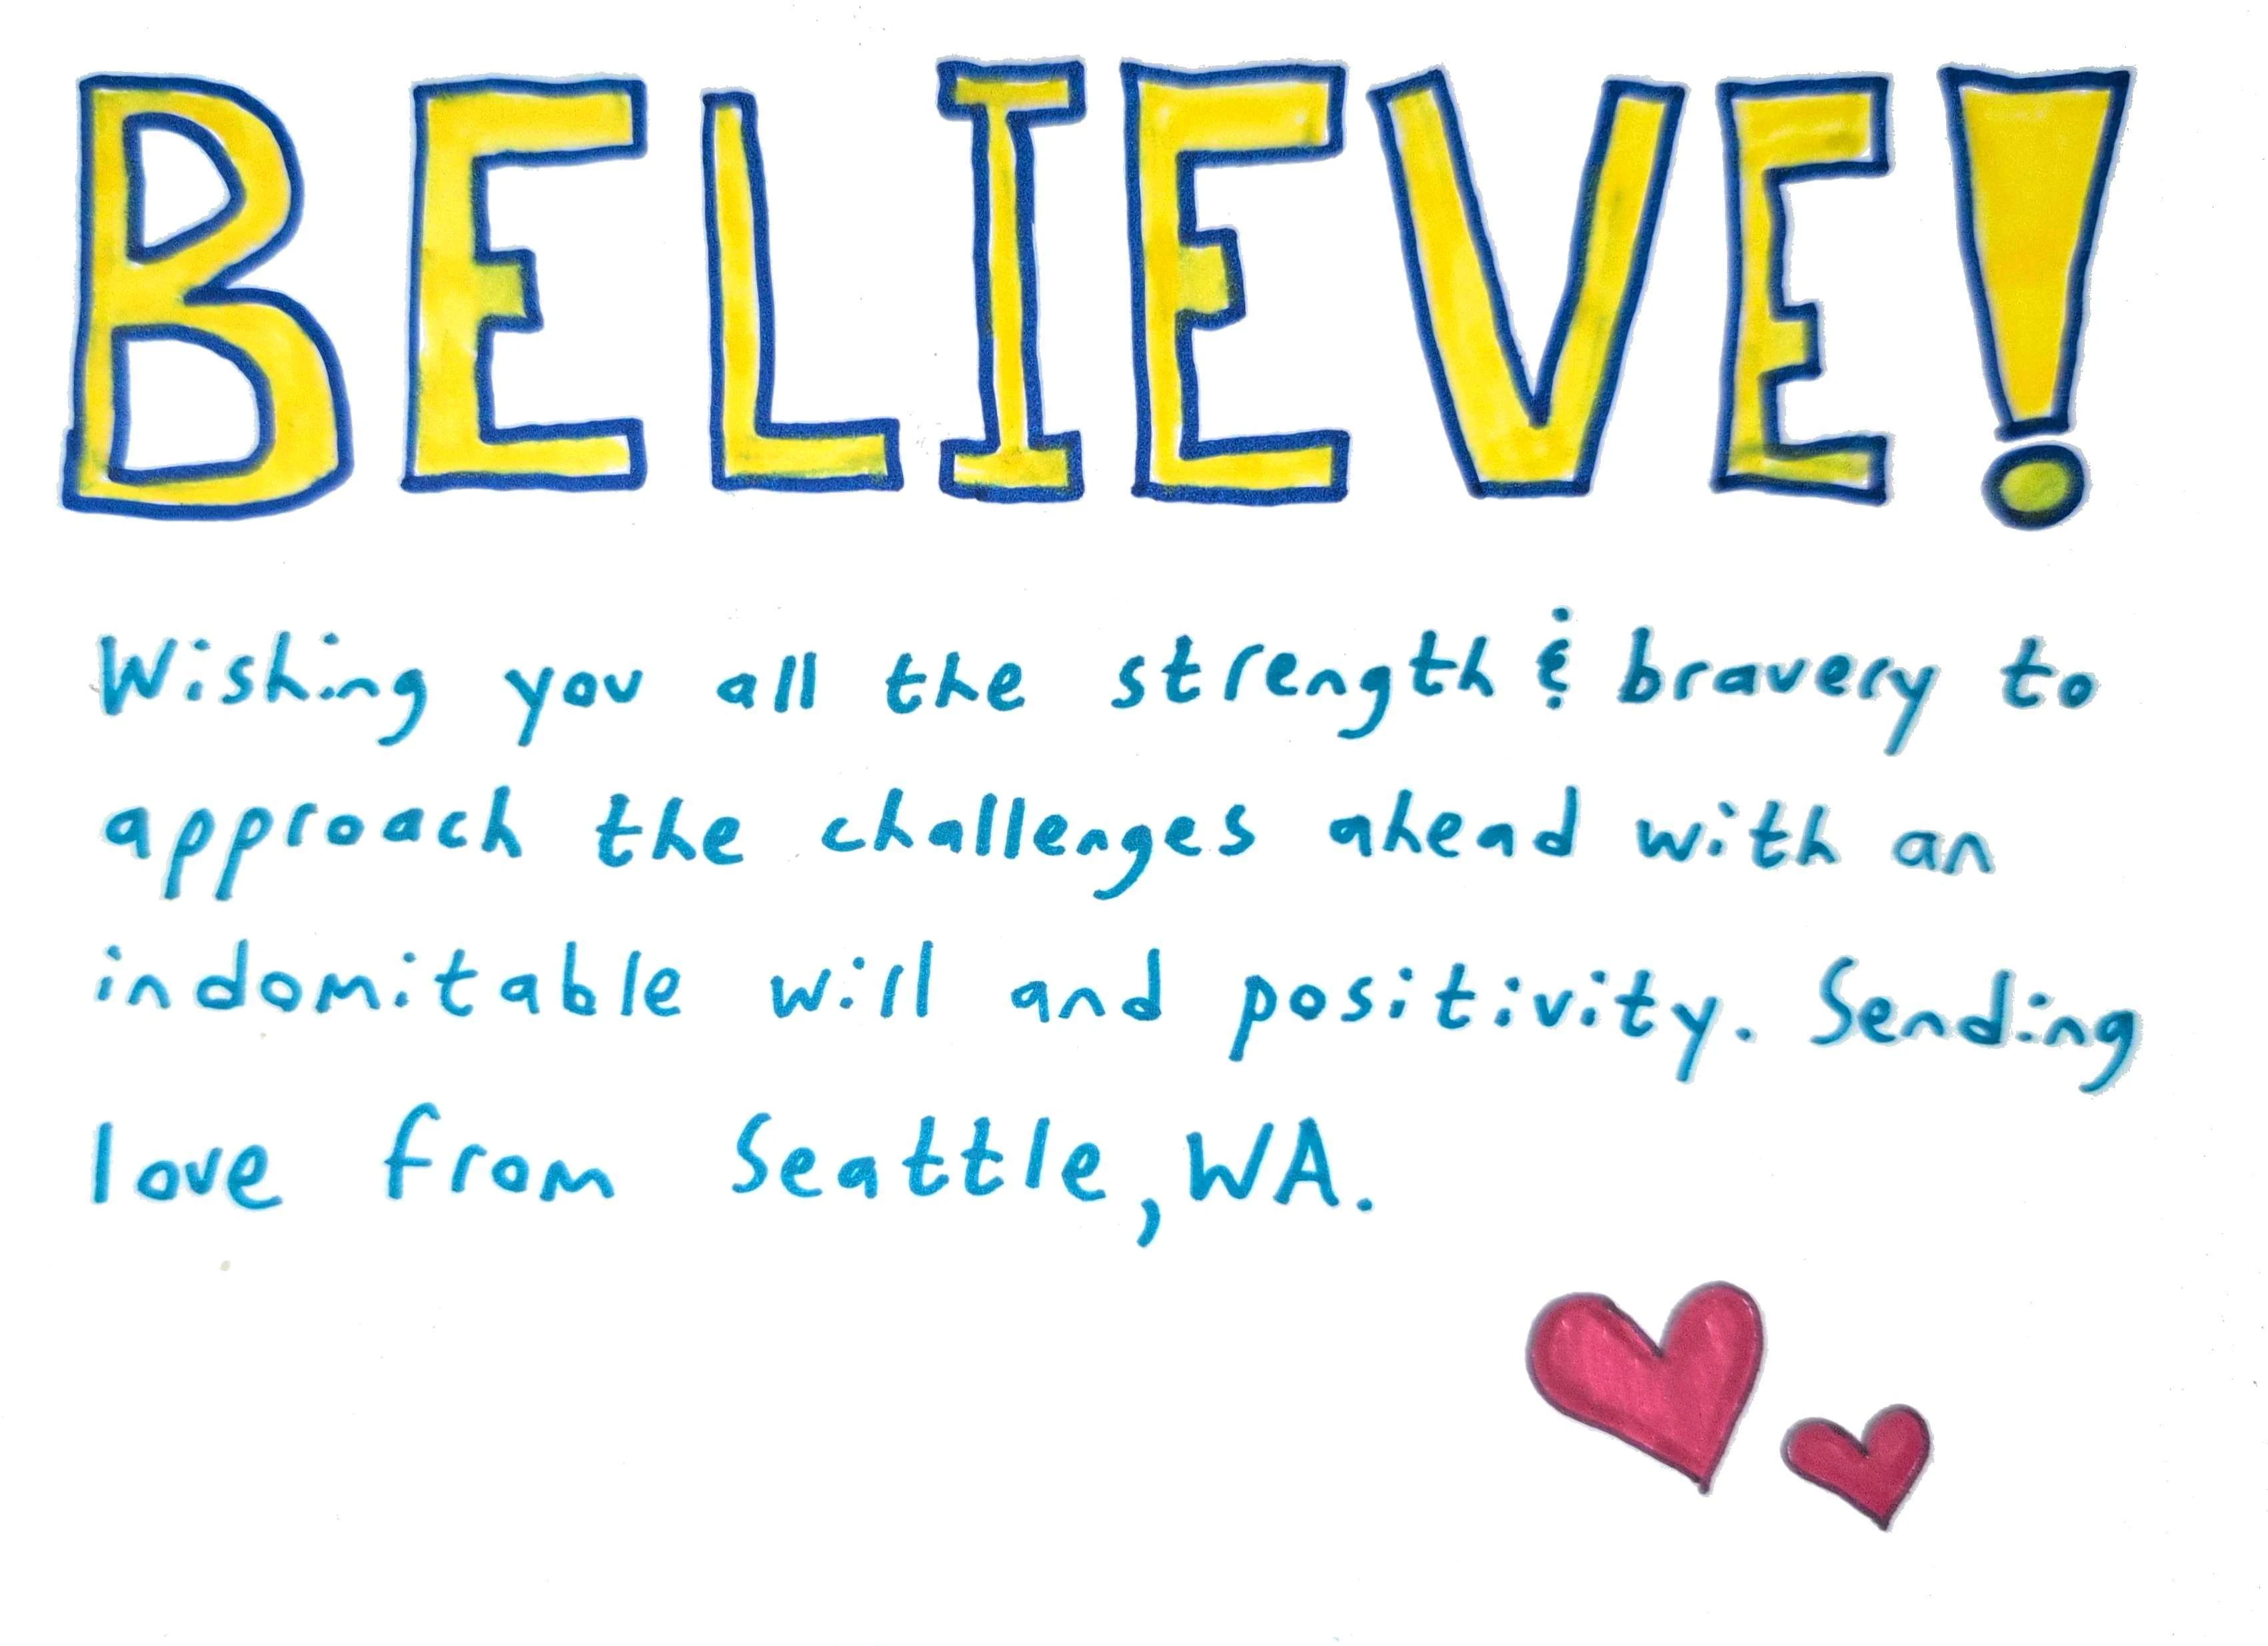 BELIEVE!
Wishing you all the strength & bravery to
approach the challenges ahead with an
indomitable will and positivity. Sending
love from Seattle, WA.